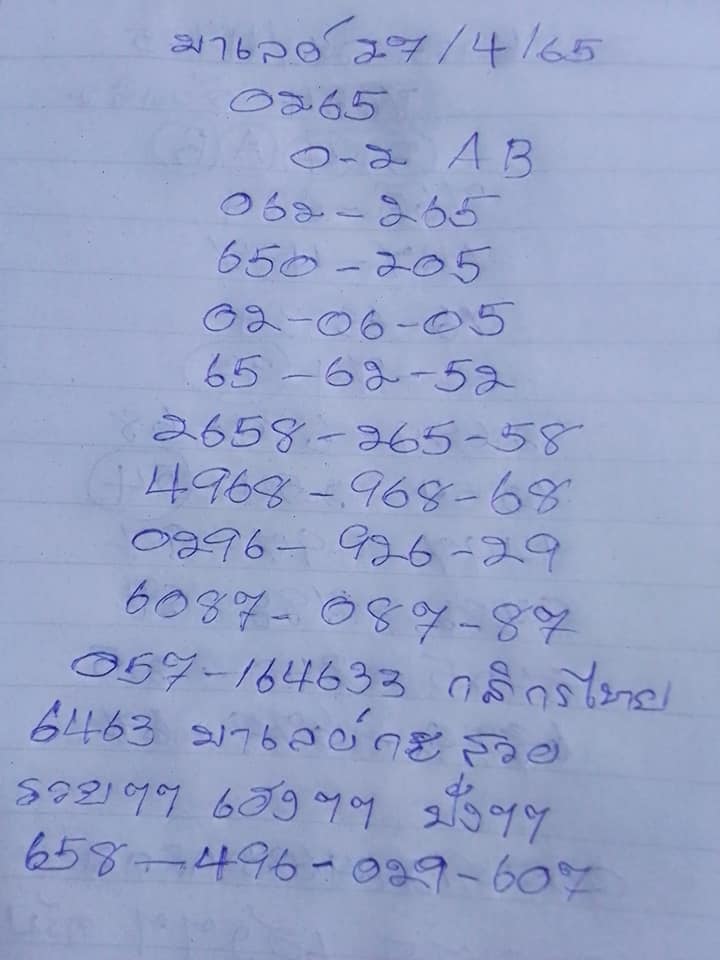 มาเลย์ 27/4/65
0265
0-2 AB
062-265
650-205
02-06-05
65-62-52
2658-265-58
4968-968-68
0296-926-29
6087-087-87
057-164633 กสิกรไทย
6463 มาเลย์
รวยๆๆ เฮงๆๆ ปังๆๆ
658-496-029-607